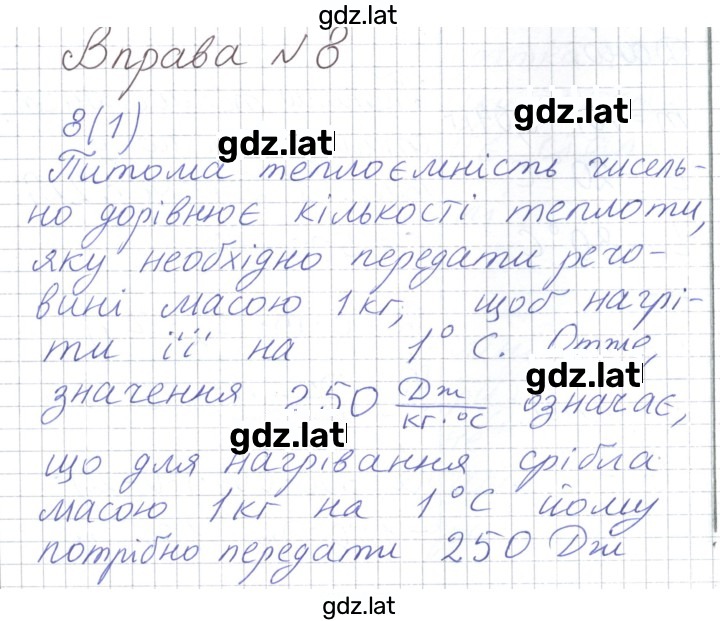 gdz.lat
Вправа №8
8(1)
gdz.lat
gdz.lat
Питома теплоємність чисель-
но дорівнює кількості теплоти,
яку необхідно передати речо-
вині масою 1 кг, щоб нагрі-
ти її на 1° С. Отже,
gdz.lat
значення 250 Дж/кг·°С означає,
gdz.lat
що для нагрівання срібла
масою 1 кг на 1°С йому
потрібно передати 250 Дж
gdz.lat